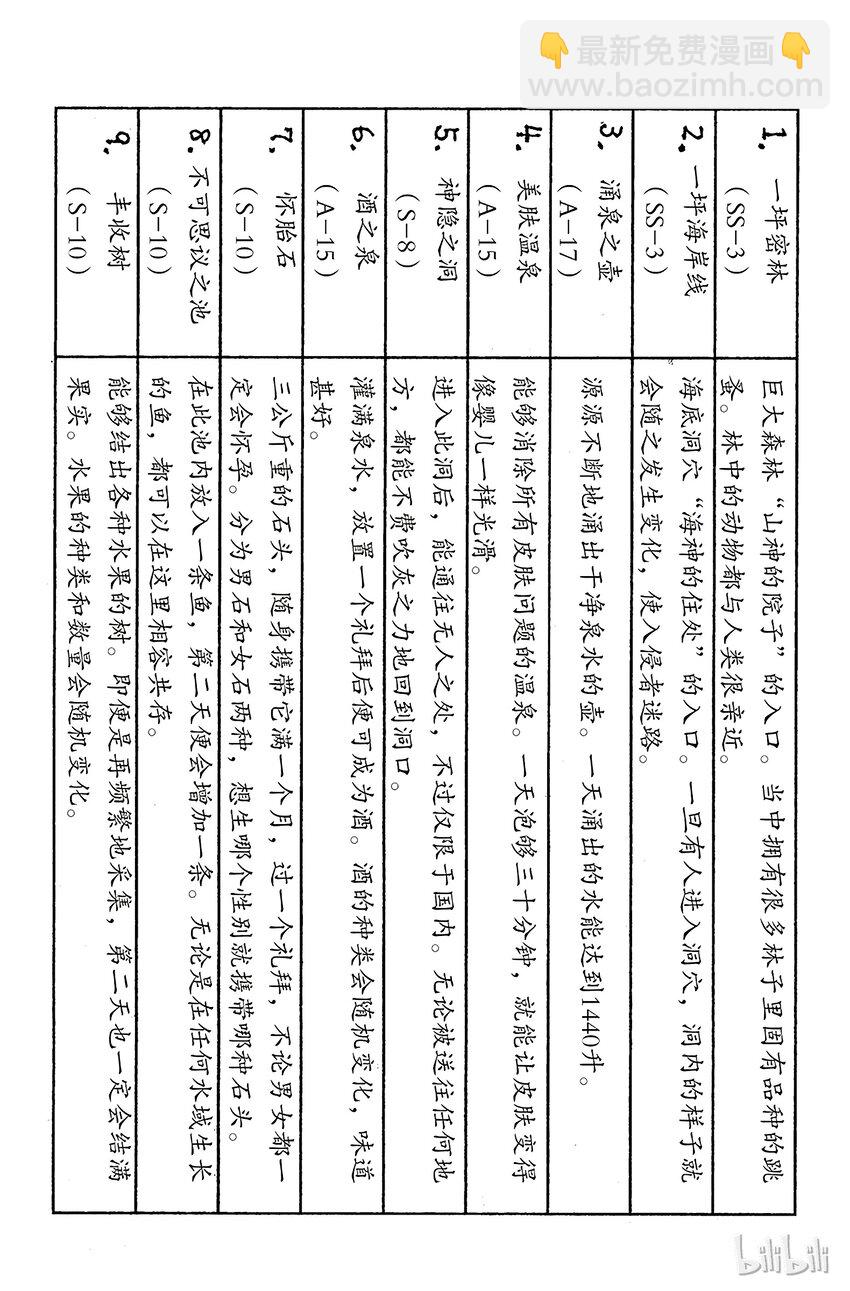 👇最新免费漫画👇
www.baozimh.com
1. 一坪密林
(SS-3)
巨大森林“山神的院子”的入口。当中拥有很多林子里固有品种的跳
蚤。林中的动物都与人类很亲近。
2. 一坪海岸线
(SS-3)
海底洞穴“海神的住处”的入口。一旦有人进入洞穴，洞内的样子就
会随之发生变化，使入侵者迷路。
3. 涌泉之壶
(A-17)
源源不断地涌出干净泉水的壶。一天涌出的水能达到1440升。
4. 美肤温泉
(A-15)
能够消除所有皮肤问题的温泉。一天泡够三十分钟，就能让皮肤变得
像婴儿一样光滑。
5. 神隐之洞
(S-8)
进入此洞后，能通往无人之处，不过仅限于国内。无论被送往任何地
方，都能不费吹灰之力地回到洞口。
6. 酒之泉
(A-15)
灌满泉水，放置一个礼拜后便可成为酒。酒的种类会随机变化，味道
甚好。
7. 怀胎石
(S-10)
三公斤重的石头，随身携带它满一个月，过一个礼拜，不论男女都一
定会怀孕。分为男石和女石两种，想生哪个性别就携带哪种石头。
8. 不可思议之池
(S-10)
在此池内放入一条鱼，第二天便会增加一条。无论是在任何水域生长
的鱼，都可以在这里相容共存。
9. 丰收树
(S-10)
能够结出各种水果的树。即便是再频繁地采集，第二天也一定会结满
果实。水果的种类和数量会随机变化。
bilibili